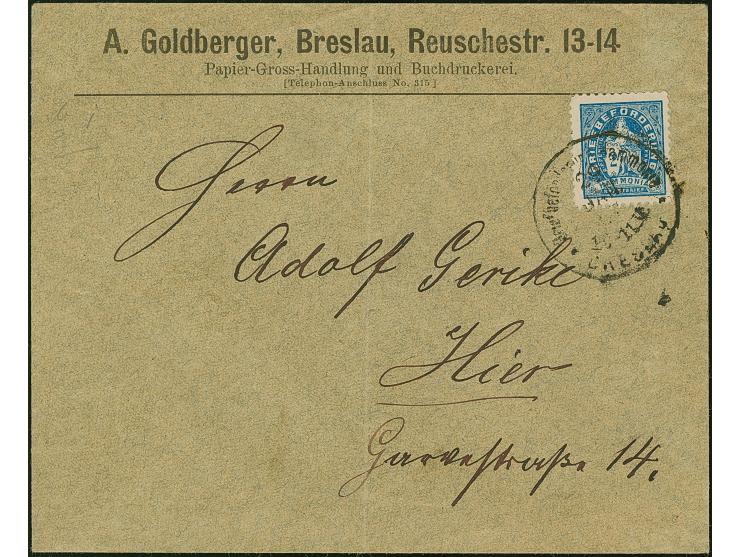 A. Goldberger, Breslau, Reuschestr. 13-14
Papier-Gross-Handlung und Buchdruckerei.
[Telephon-Anschluss No. 315]
BRIEFBEFÖRDERUNG
2
BRESLAU
Herrn
Adolf Gerike
Hier
Garvestraße 14.